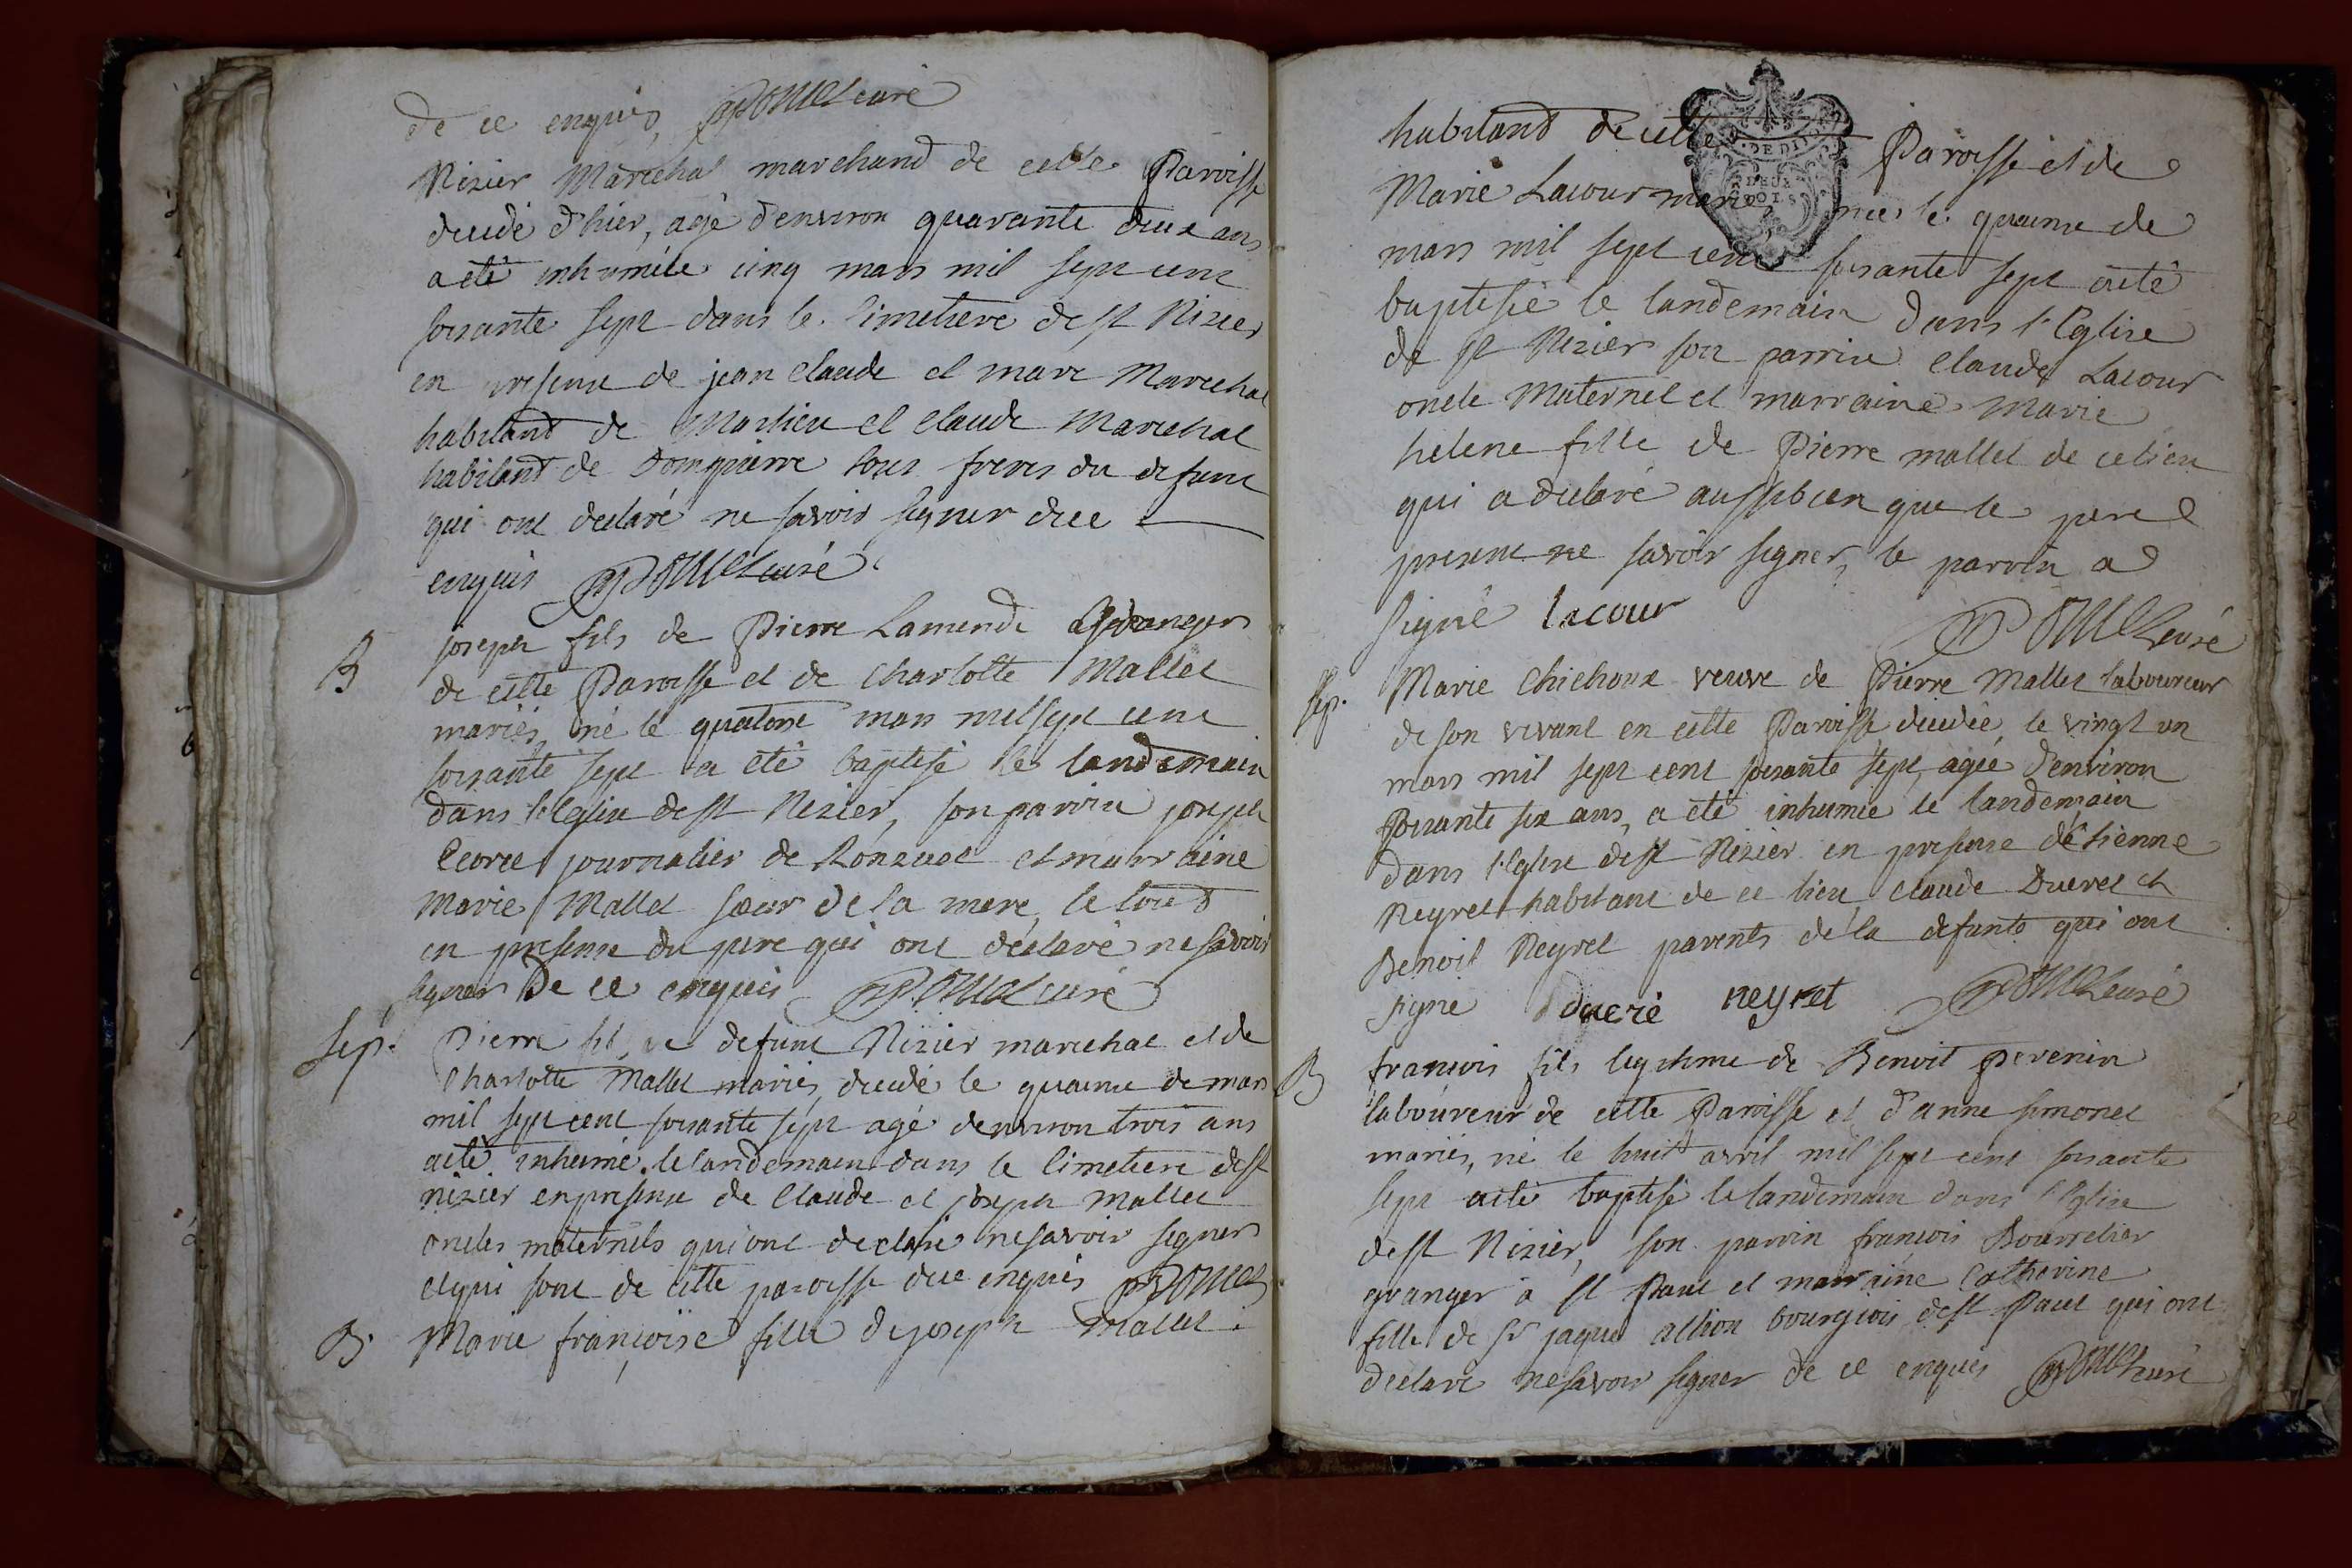 de ce enquis, curé
Nizier Marechal marchand de cette Paroisse
decedé d'hier, agé d'environ quarante deux ans
a eté inhumé le cinq mars mil sept cent
soixante sept dans le cimetiere de st Nizier
en presence de jean claude et marc Marechal
habitand de et claude Marechal
habitand de Dompierre tous freres du defunt
qui ont declaré ne savoir signer de ce
enquis curé
B joseph fils de Pierre Lamende
de cette Paroisse et de Charlotte Mallet
mariés, né le quatorse mars mil sept cent
soixante sept a eté baptisé le landemain
dans l'Eglise de st Nizier, son parrin joseph
journalier de et marraine
Marie Mallet sœur de la mere, le tout
en presense du pere qui ont declaré ne savoir
signer de ce enquis curé
Sep. Pierre fils de defunt Nizier marechal et de
Charlotte Mallet mariés, decedé le quinze de mars
mil sept cent soixante sept agé d'environ trois ans
a eté inhumé le landemain dans le cimetiere de st
nizier en presense de Claude et joseph Mallet
oncles maternels qui ont declaré ne savoir signer
et qui sont de cette paroisse de ce enquis
B. Marie françoise fille de joseph Mallet
habitand de cette Paroisse et de
DEUX SOLS
Marie Lacour mariés, née le quinze de
mars mil sept cent soixante sept a eté
baptisée le landemain dans l'Eglise
de st Nizier son parrin Claude Lacour
oncle Maternel et marraine Marie
helene fille de Pierre mallet de ce lieu
qui a declaré aussi bien que le pere
present ne savoir signer, le parrin a
signé lacour
curé
Sep. Marie Chichoux veuve de Pierre Mallet laboureur
de son vivant en cette Paroisse, decedée le vingt un
mars mil sept cent soixante sept, agée d'environ
soixante six ans, a eté inhumée le landemain
dans l'Eglise de st Nizier en presense d'étienne
Neyret habitant de ce lieu claude Ducret et
Benoit Neyret parents de la defunte qui ont
signé ducré neyret curé
B françois fils legithme de Benoit perenin
laboureur de cette Paroisse et d'anne simonet
mariés, né le huit avril mil sept cent soixante
sept a eté baptisé le landemain dans l'Eglise
de st Nizier, son parrin françois Bourrelier
granger à st Paul et marraine Catherine
fille de sr jaque allion bourgeois de st Paul qui ont
declaré ne savoir signer de ce enquis curé